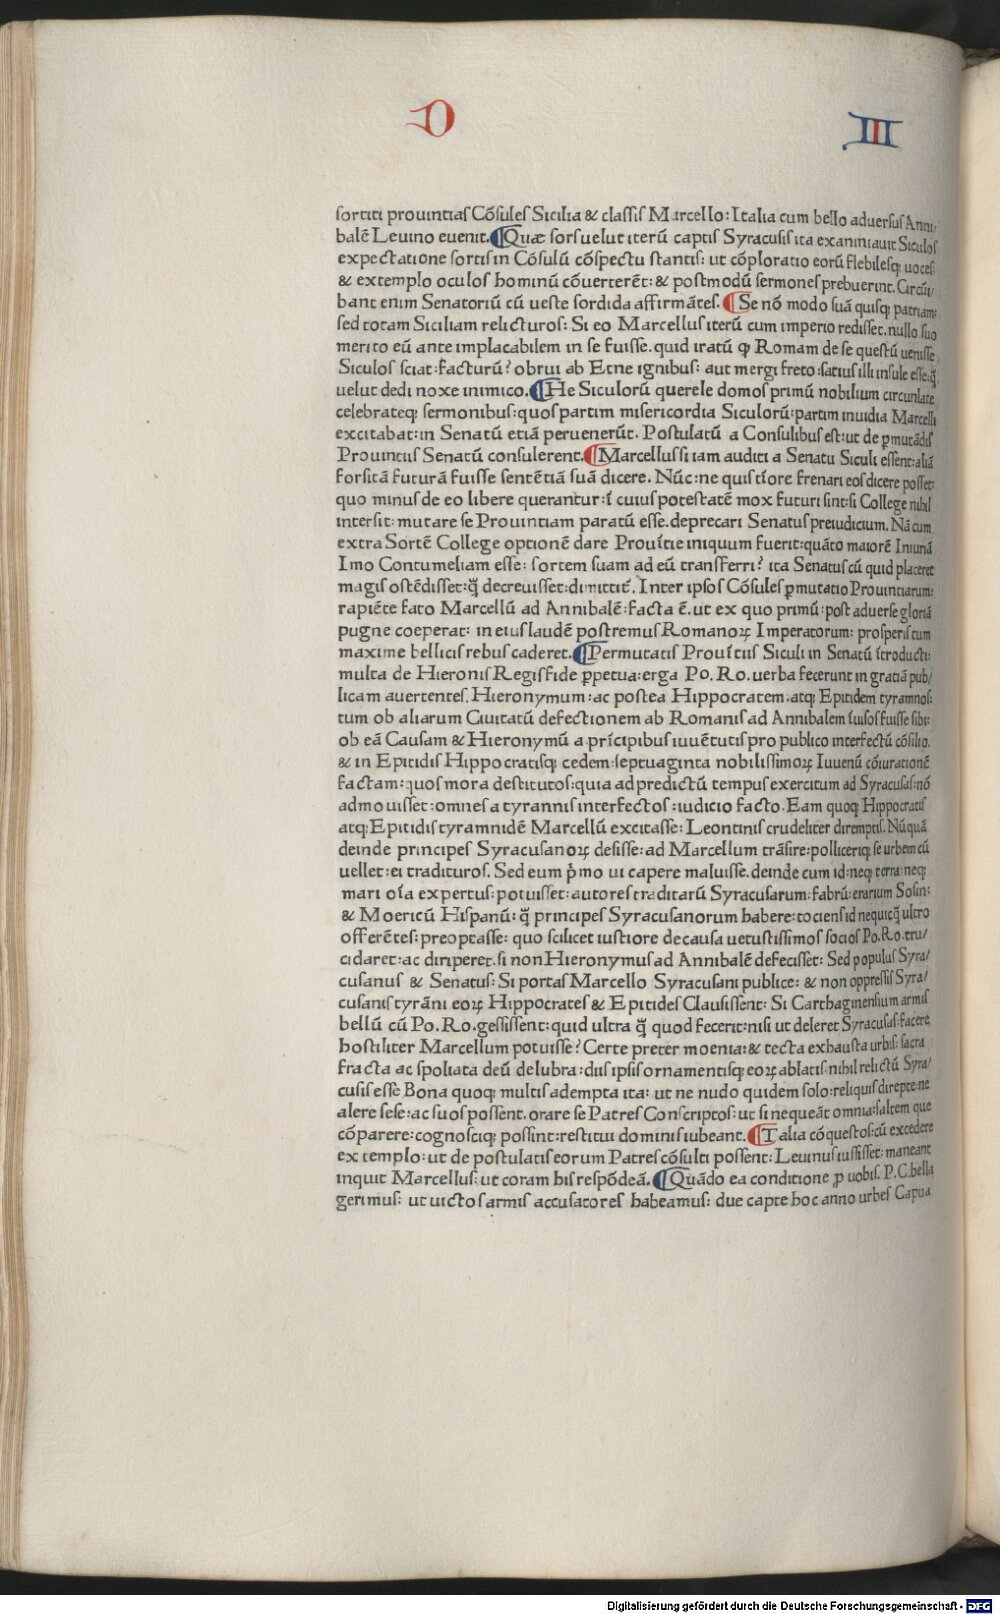 D
III
ſortiti prouintiaſ Cõſuleſ Sicilia & claſſiſ Marcello: Italia cum bello aduerſuſ Anni/
balẽ Leuino euenit. ¶Quæ ſorſ uelut iterũ captiſ Syracuſiſ ita exanimauit Siculoſ
expectatione ſortiſ in Cõſulũ cõſpectu ſtantiſ: ut cõploratio eorũ flebileſq; uoceſ:
& extemplo oculoſ hominũ cõuerterẽt: & poſtmodũ ſermoneſ prebuerint. Circũi/
bant enim Senatoriũ cũ ueſte ſordida affirmãteſ. ¶Se nõ modo ſuã quiſq; patriam:
ſed totam Siciliam relicturoſ: Si eo Marcelluſ iterũ cum imperio rediſſet. nullo ſuo
merito eũ ante implacabilem in ſe fuiſſe. quid iratũ ꝙ Romam de ſe queſtũ ueniſſe
Siculoſ ſciat: facturũ? obrui ab Etne ignibuſ: aut mergi freto: ſatiuſ illi inſule eſſe: q̃
uelut dedi noxe inimico. ¶He Siculorũ querele domoſ primũ nobilium circunlate
celebrateq; ſermonibuſ: quoſ partim miſericordia Siculorũ: partim inuidia Marcelli
excitabat: in Senatũ etiã peruenerũt. Poſtulatũ a Conſulibuſ eſt: ut de ꝑmutãdiſ
Prouintiiſ Senatũ conſulerent. ¶Marcelluſ ſi iam auditi a Senatu Siculi eſſent: aliã
forſitã futurã fuiſſe ſentẽtiã ſuã dicere. Nũc: ne quiſ tĩore frenari eoſ dicere poſſet:
quo minuſ de eo libere querantur: ĩ cuiuſ poteſtatẽ mox futuri ſint: ſi College nihil
interſit: mutare ſe Prouintiam paratũ eſſe. deprecari Senatuſ preiudicium. Nã cum
extra Sortẽ College optionẽ dare Prouĩtie iniquum fuerit: quãto maiorẽ Iniuriã
Imo Contumeliam eſſe: ſortem ſuam ad eũ tranſferri? ita Senatuſ cũ quid placeret
magiſ oſtẽdiſſet: q̃ decreuiſſet: dimittit̃. Inter ipſoſ Cõſuleſ ꝑmutatio Prouintiarum:
rapiẽte fato Marcellũ ad Annibalẽ: facta ẽ. ut ex quo primũ: poſt aduerſe gloriã
pugne coeperat: in eiuſ laudẽ poſtremuſ Romanoꝝ Imperatorum: proſperiſ tum
maxime belliciſ rebuſ caderet. ¶Permutatiſ Prouĩtiiſ Siculi in Senatũ ĩtroducti:
multa de Hieroniſ Regiſ fide ꝑpetua: erga Po. Ro. uerba fecerunt in gratiã pub/
licam auertenteſ. Hieronymum: ac poſtea Hippocratem. atq; Epitidem tyramnoſ:
tum ob aliarum Ciuitatũ defectionem ab Romaniſ ad Annibalem ĩuiſoſ fuiſſe ſibi:
ob eã Cauſam & Hieronymũ a prĩcipibuſ iuuẽtutiſ pro publico interfectũ cõſilio.
& in Epitidiſ Hippocratiſq; cedem: ſeptuaginta nobiliſſimoꝝ Iuuenũ cõiurationẽ
factam: quoſ mora deſtitutoſ: quia ad predictũ tempuſ exercitum ad Syracuſaſ: nõ
admouiſſet: omneſ a tyranniſ interfectoſ: iudicio facto. Eam quoq; Hippocratiſ
atq; Epitidiſ tyramnidẽ Marcellũ excitaſſe: Leontiniſ crudeliter diremptiſ. Nũquã
deinde principeſ Syracuſanoꝝ deſiſſe: ad Marcellum trãſire: pollicerięq; ſe urbem cũ
uellet: ei tradituroſ. Sed eum p̃mo ui capere maluiſſe. deinde cum id: neq; terra: neq;
mari oĩa expertuſ: potuiſſet: autoreſ traditarũ Syracuſarum: fabrũ: erarium Soſin:
& Moericũ Hiſpanũ: q̃ principeſ Syracuſanorum habere: totienſ id nequicq̃ ultro
offerẽteſ: preoptaſſe: quo ſcilicet iuſtiore de cauſa uetuſtiſſimoſ ſocioſ Po. Ro. tru/
cidaret: ac diriperet. ſi non Hieronymuſ ad Annibalẽ defeciſſet: Sed populuſ Syra/
cuſanuſ & Senatuſ: Si portaſ Marcello Syracuſani publice: & non oppreſſiſ Syra/
cuſaniſ tyrãni eoꝝ Hippocrateſ & Epitideſ Clauſiſſent: Si Carthaginenſium armiſ
bellũ cũ Po. Ro. geſſiſſent: quid ultra q̃ quod fecerit: niſi ut deleret Syracuſaſ: facere
hoſtiliter Marcellum potuiſſe? Certe preter moenia: & tecta exhauſta urbiſ: ſacra
fracta ac ſpoliata deũ delubra: diiſ ipſiſ ornamentiſq; eoꝝ ablatiſ: nihil relictũ Syra/
cuſiſ eſſe Bona quoq; multiſ adempta ita: ut ne nudo quidem ſolo: reliquiſ direpte ne
alere ſeſe: ac ſuoſ poſſent. orare ſe Patreſ Conſcriptoſ: ut ſi nequeãt omnia: ſaltem que
cõparere: cognoſciq; poſſint: reſtitui dominiſ iubeant. ¶Talia cõqueſtoſ: cũ excedere
ex templo: ut de poſtulatiſ eorum Patreſ cõſulti poſſent: Leuinuſ iuſſiſſet: maneant
inquit Marcelluſ: ut coram hiſ reſpõdeã. ¶Quãdo ea conditione ꝓ uobiſ. P. C. bella
gerimuſ: ut uictoſ armiſ accuſatoreſ habeamuſ: due capte hoc anno urbeſ Capua
Digitalisierung gefördert durch die Deutsche Forschungsgemeinschaft - DFG